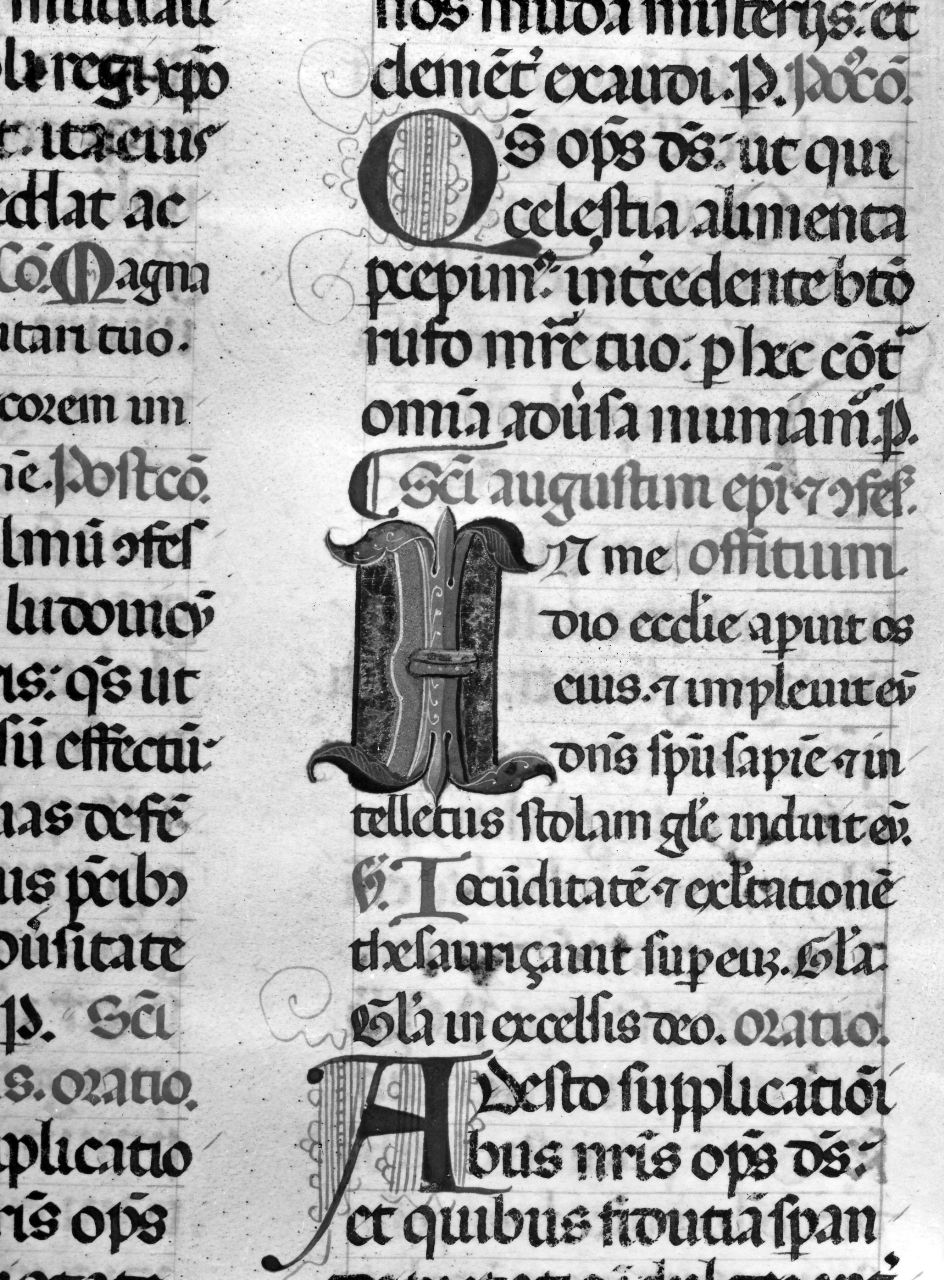 li regi xp̄o
t ita eius
ac
cō. Magna
utari tuo.
corem im
Postcō.
ludouicū
q̄s ut
effectū:
p̄cibꝰ
p. Sc̄i
s. oratio.
plicatio
r̄is op̄s
nos munda misterijs: et
clemēt' exaudi. p. Pꝰcō.
Qs̄ op̄s ds̄: ut qui
celestia alimenta
p̄cepimꝰ: int̄cedente btō
rufo mr̄e tuo. p hec cōt̄
omīa aduersa muniam̄. p.
Sc̄i augustini ep̄i ⁊ ꝯfes.
IN me offitium
dio eccl̄ie apuit os
eius. ⁊ impleuit eū
dn̄s sp̄u sapīe ⁊ in
tellectus stolam gl̄e induit eū.
V̄. Iocūditatē ⁊ exl̄tationē
thesauriçauit sup eū. Gl̄a
Gl̄a in excelsis deo. oratio.
Adesto supplicatiōi
bus nr̄is op̄s ds̄:
et quibus fidutiā span